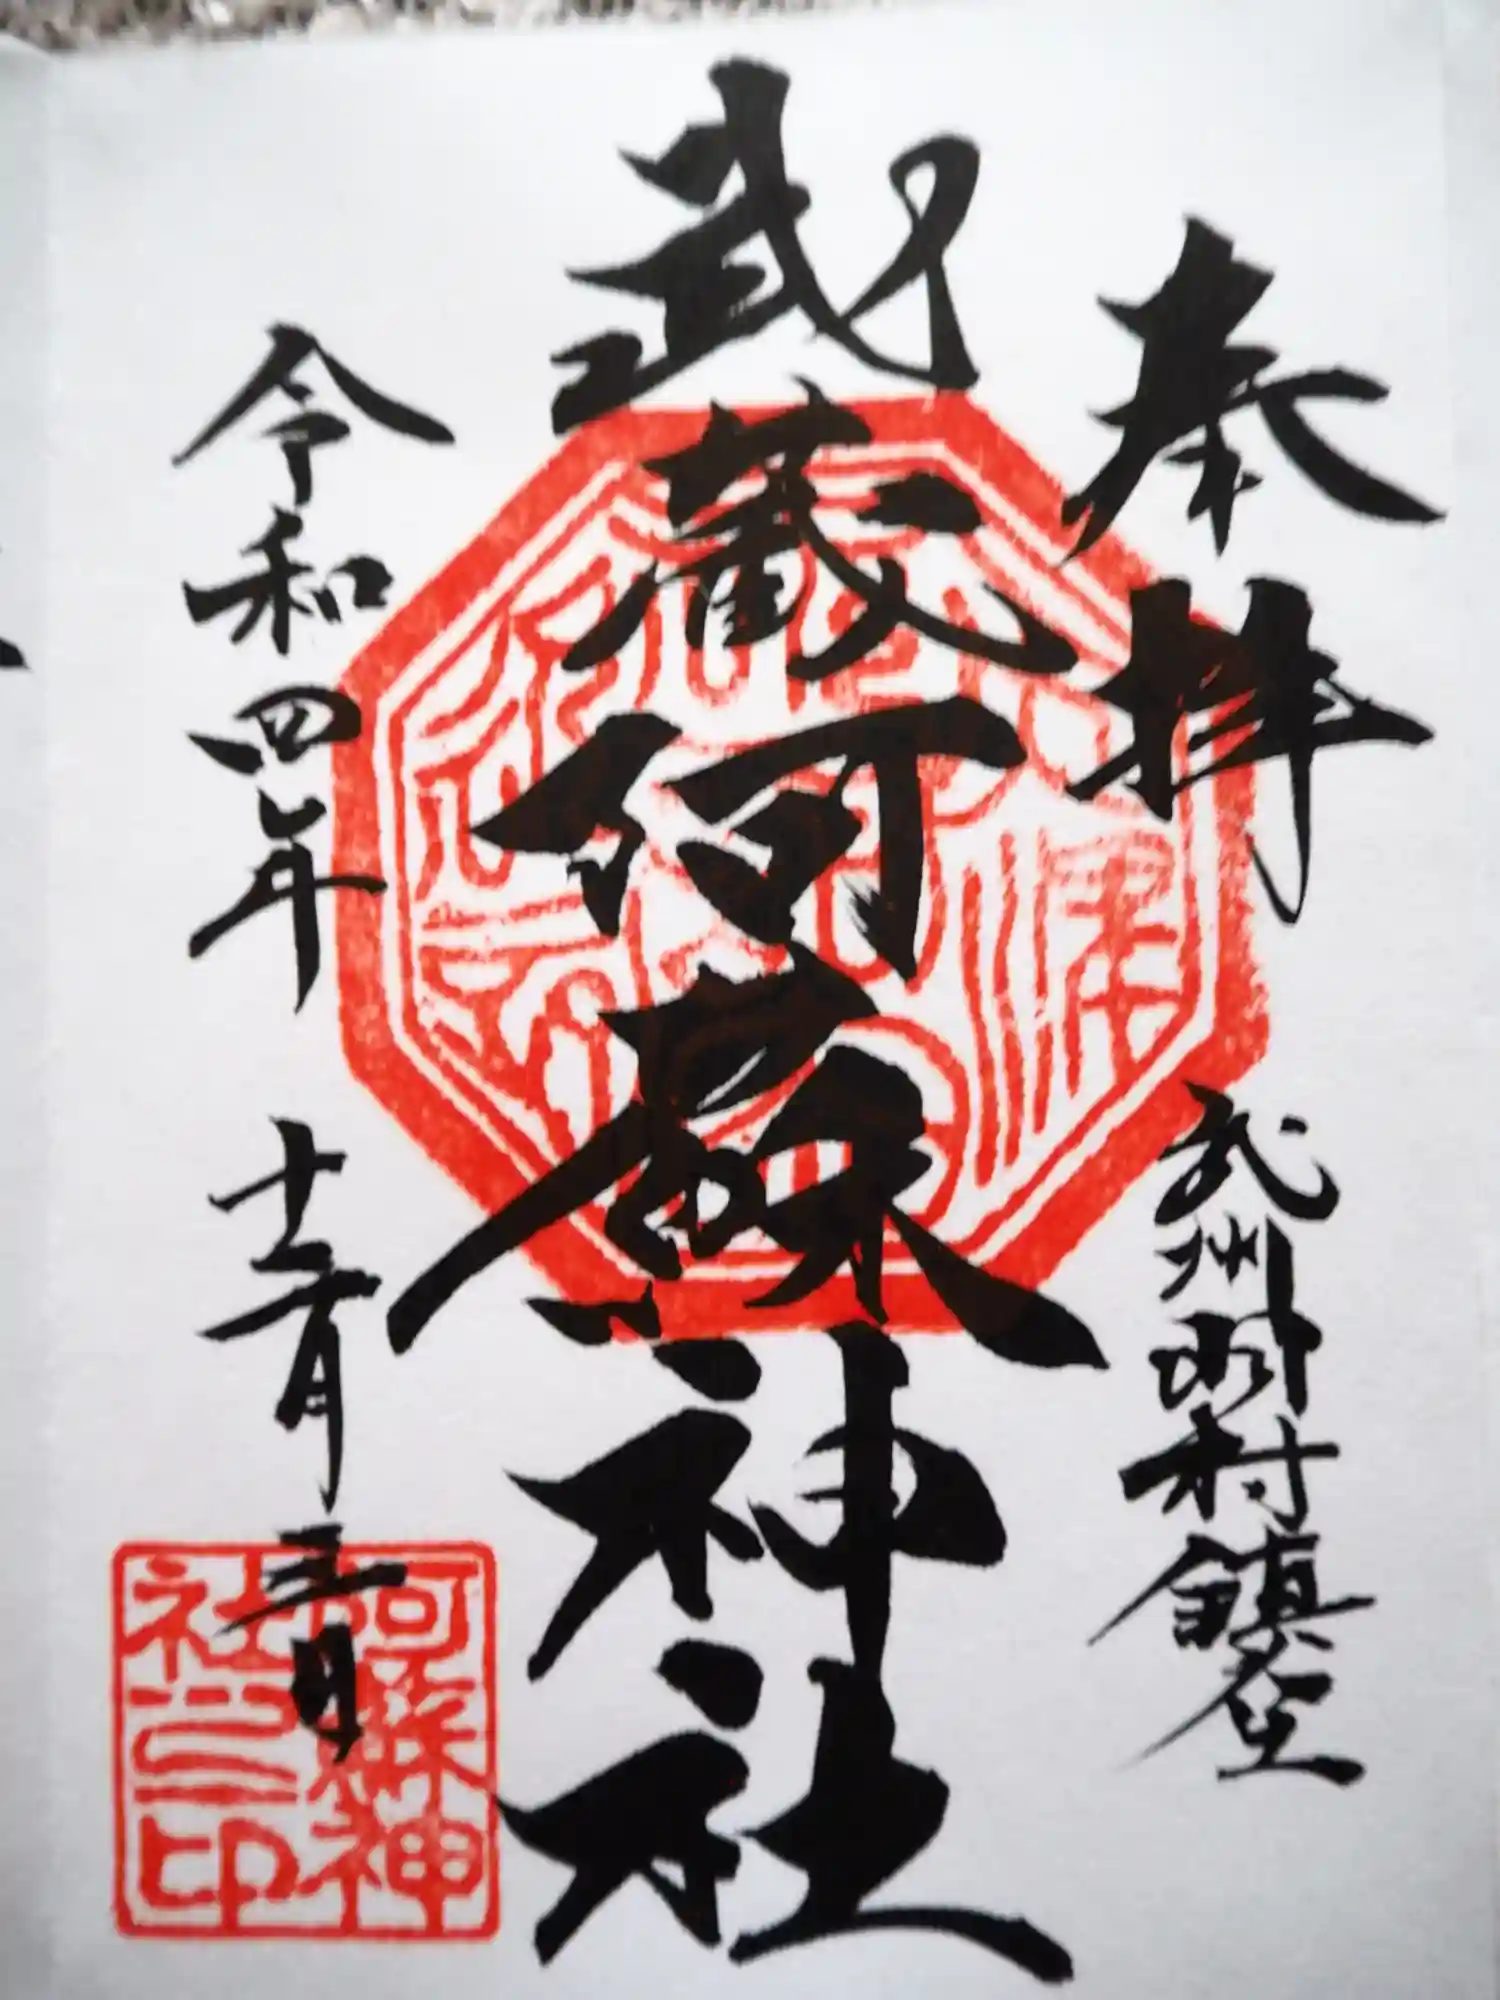 奉拝
武州羽村鎮座
武蔵阿蘇神社
令和四年 十二月三日
阿蘇神
社之印